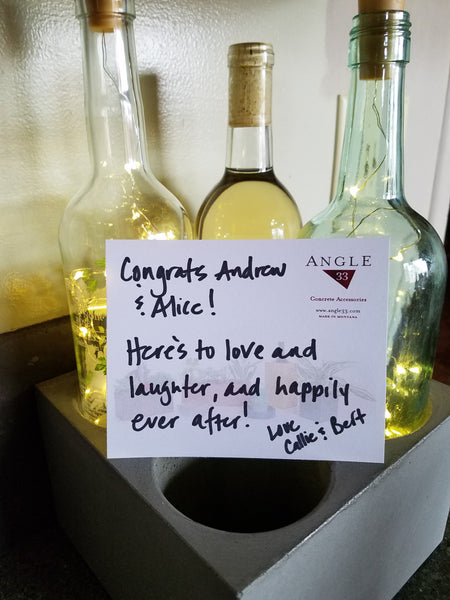 Congrats Andrew
& Alice!
Here's to love and
laughter, and happily
ever after!
Love
Callie & Bert
ANGLE
33
Concrete Accessories
www.angle33.com
MADE IN MONTANA